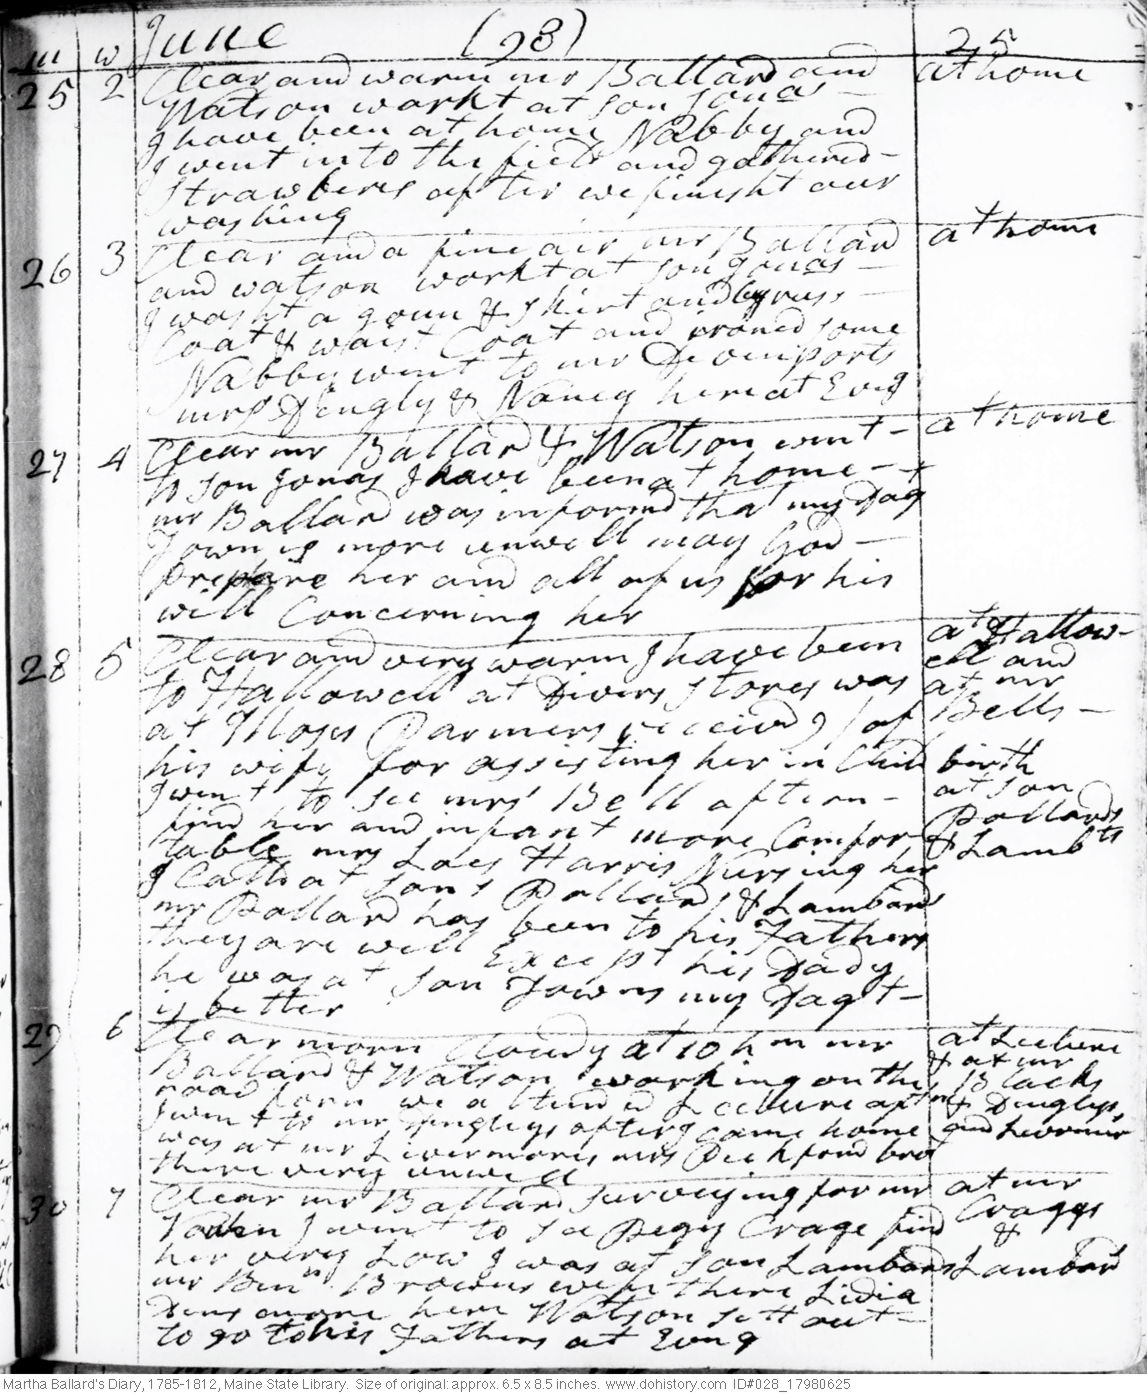 m w June (28) 25
25 2 Clear and warm mr Ballard and at home
Watson workt at son Jonas
I have been at home Nabby and
I went into the field and gathered
strawberes after we finisht our
washing
26 3 Clear and a fine air mr Ballard at home
and watson workt at son Jonas
I washt a goun & skirt and
Coat & waist Coat and ironed some
Nabby went to mr Devinports
mrs Dingly & Nancy here at Evng
27 4 Clear mr Ballard & Watson went at home
to son Jonas I have been at home +
mr Ballard was informd that my Dagt
Town is more unwell may God
prepare her and all of us for his
will Concerning her
28 5 Clear and very warm I have been at Hallow-
to Hallowell at Divers stores was ell and
at Moses Parmers received of at mr Bells
his wife for assisting her in Child birth
I went to see mrs Bell aftern at son
find her and infant more Comfor Pollards
table mrs Harris Nursing her & Lambds
I Calld at sons Pollard & Lambard
mr Ballard has been to his Fathers
they are well Except his Dady
he was at son Towns my Dagt
is better
29 6 Clear morn Cloudy at 10 h mn mr at Lecture
Ballard & Watson working on the & at mr Blacks
road forn we attend Lecture aftn & Dinglys
I went to mr Dinglys after I came home and Livermor
was at mr Livermores mrs Pechford
there very unwell
30 7 Clear mr Ballard surveying for mr at mr
I went to see Pegy Crage find Craggs
her very Low I was at son Lambards & Lambard
mr Benn Browns wife there Lidia
Densmore here Watson sett out
to go to his Fathers at Evng
Martha Ballard's Diary, 1785-1812, Maine State Library. Size of original: approx. 6.5 x 8.5 inches. www.dohistory.com ID#028_17980625